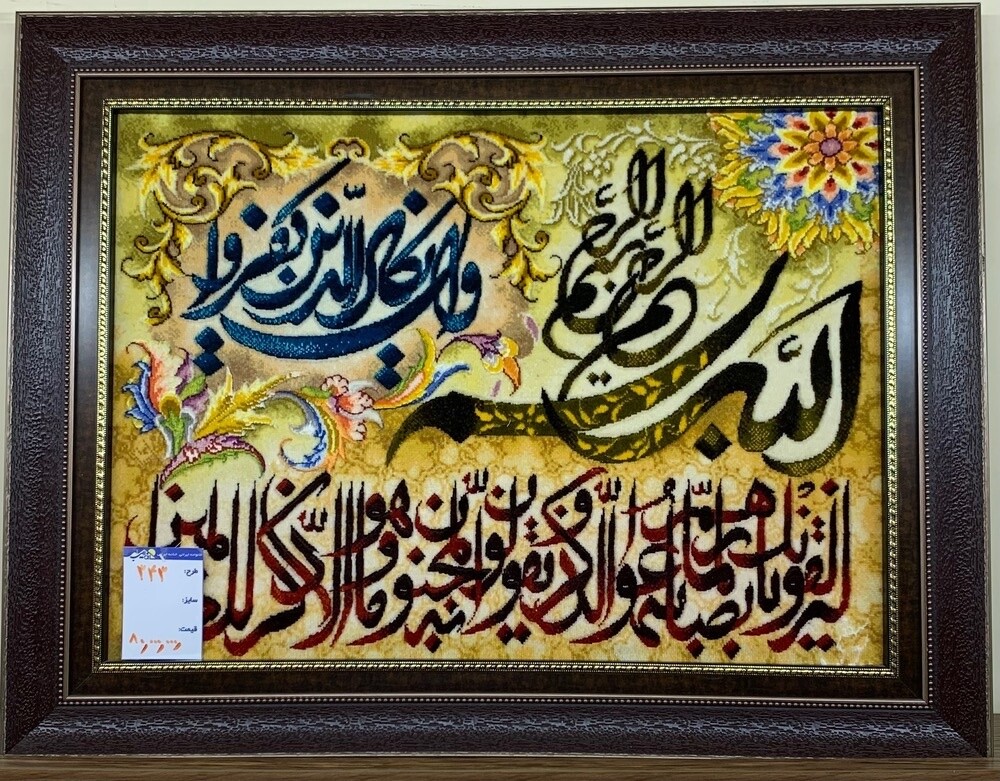 بسم الله الرحمن الرحیم
وان یکاد الذین کفروا
لیزلقونک بابصارهم لما سمعوا الذکر و یقولون انه لمجنون و ما هو الا ذکر للعالمین
طرح: ۲۴۳
سایز:
قیمت: